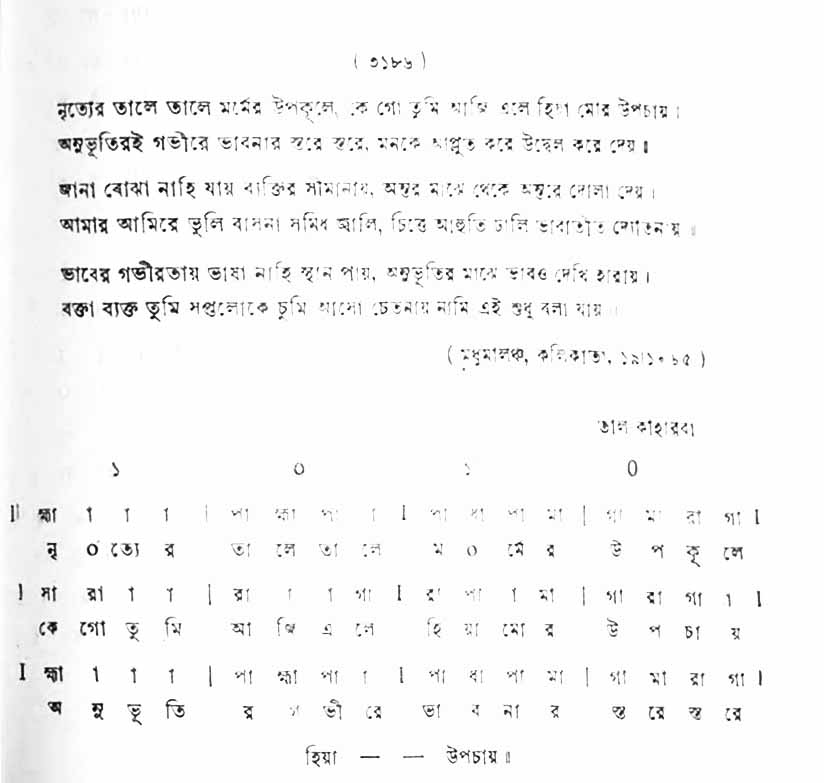 ( ৩১৮৬ )
নৃত্যের তালে তালে মর্মের উপকূলে, কে গো তুমি আজি এলে হিয়া মোর উপচায় ।
অনুভূতিরই গভীরে ভাবনার স্তরে স্তরে, মনকে আপ্লুত করে উদ্বেল করে দেয় ॥
জানা বোঝা নাহি যায় ব্যক্তির সীমানায়, অন্তর মাঝে থেকে অন্তরে দোলা দেয় ।
আমার আমিরে ভুলি বাসনা সমিধ জ্বালি, চিত্তে আহুতি ঢালি ভাবাতীত দ্যোতনায় ॥
ভাবের গভীরতায় ভাষা নাহি স্থান পায়, অনুভূতির মাঝে ভাবও দেখি হারায় ।
বক্তা ব্যক্ত তুমি সপ্তলোকে চুমি আসো চেতনায় নামি এই শুধু বলা যায় ॥
( মধুমালঞ্চ, কলিকাতা, ১৯।১০।৮৫ )
তাল কাহারবা
১ ০ ১ 0
II হ্মা া া া | পা হ্মা পা া I পা ধা পা মা | গা মা রা গা I
নৃ ০ ত্যে র তা লে তা লে ম ০ র্মে র উ প কূ লে
I সা রা া া | রা া া গা I রা পা া মা | গা রা গা া I
কে গো তু মি আ জি এ লে হি য়া মো র উ প চা য়
I হ্মা া া া | পা হ্মা পা া I পা ধা পা মা | গা মা রা গা I
অ নু ভূ তি র গ ভী রে ভা ব না র স্ত রে স্ত রে
হিয়া — — উপচায় ॥